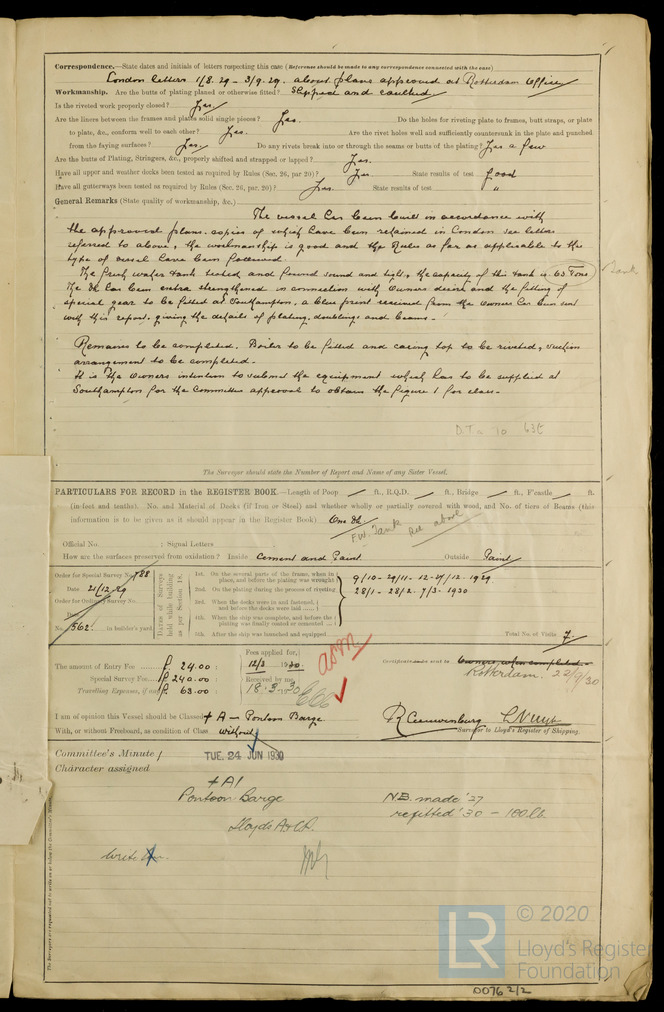 Correspondence.—State dates and initials of letters respecting this case (Reference should be made to any correspondence connected with the case)
London letters 1/8.29 - 3/9.29. about plans approved at Rotterdam Office
Workmanship. Are the butts of plating planed or otherwise fitted? Shipped and caulked
Is the riveted work properly closed? Yes.
Are the liners between the frames and plates solid single pieces? Yes. Do the holes for riveting plate to frames, butt straps, or plate
to plate, &c., conform well to each other? Yes. Are the rivet holes well and sufficiently countersunk in the plate and punched
from the faying surfaces? Yes Do any rivets break into or through the seams or butts of the plating? Yes a few
Are the butts of Plating, Stringers, &c., properly shifted and strapped or lapped? Yes.
Have all upper and weather decks been tested as required by Rules (Sec. 26, par. 20)? Yes State results of test good
Have all gutterways been tested as required by Rules (Sec. 26, par. 20)? Yes. State results of test "
General Remarks (State quality of workmanship, &c.)
The vessel has been built in accordance with
the approved plans. copies of which have been retained in London see letters
referred to above, the workmanship is good and the Rules as far as applicable to the
type of vessel have been followed.
The fresh water tank tested and found sound and tight, the capacity of this tank is 63 Tons Tank
The dk has been extra strengthened in connection with Owners desire and the fitting of
special gear to be fitted at Southampton, a blue print received from the owners has been sent
with this report. giving the details of plating, doublings and beams.-
Remains to be completed. Boiler to be fitted and casing top to be riveted, suction
arrangement to be completed.-
It is the owners intention to submit the equipment which has to be supplied at
Southampton for the Committees approval to obtain the figure 1 for class.-
D.T. 63t
The Surveyor should state the Number of Report and Name of any Sister Vessel.
PARTICULARS FOR RECORD in the REGISTER BOOK.—Length of Poop ft., R.Q.D. ft., Bridge ft., F'castle ft.
(in feet and tenths). No. and Material of Decks (if Iron or Steel) and whether wholly or partially covered with wood, and No. of tiers of Beams (this
information is to be given as it should appear in the Register Book) One dk
F.W. Tank see above
Official No. ; Signal Letters
How are the surfaces preserved from oxidation? Inside Cement and Paint Outside Paint
Order for Special Survey No. 788
Date 21/12.29
Order for Ordinary Survey No.
Date
No. 562. in builder's yard.
Dates of Surveys held while building as per Section 18.
1st. On the several parts of the frame, when in place, and before the plating was wrought
2nd. On the plating during the process of riveting
3rd. When the decks were in and fastened, and before the decks were laid
4th. When the ship was complete, and before the plating was finally coated or cemented
5th. After the ship was launched and equipped
9/10 - 29/11 - 12-27/12. 1929.
28/1 - 28/2. 7/3. 1930
Total No. of Visits 7
The amount of Entry Fee £ 24.00
Special Survey Fee £ 240.00
Travelling Expenses, if any £ 63.00
Fees applied for,
12/3 1930
Received by me,
18.3.30
Certificate sent to Owners when completed.
Rotterdam. 22/9/30
I am of opinion this Vessel should be Classed + A - Pontoon Barge.
With, or without Freeboard, as condition of Class without
Surveyor to Lloyd's Register of Shipping.
Committee's Minute
TUE. 24 JUN 1930
Character assigned
+A1
Pontoon Barge N.B. made '27
refitted '30 - 180 lb.
Lloyds A&CP.
Write
The Surveyors are requested not to write on or below the Committee's Minute.
LR © 2020
Lloyd's Register
Foundation
0076 2/2